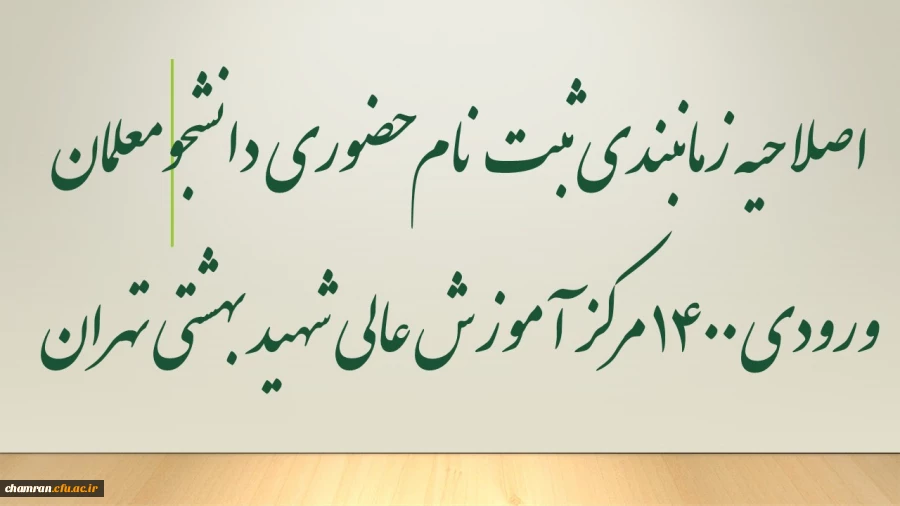 اصلاحیه زمانبندی ثبت نام حضوری دانشجو معلمان
ورودی ۱۴۰۰ مرکز آموزش عالی شهید بهشتی تهران
chamran.cfu.ac.ir